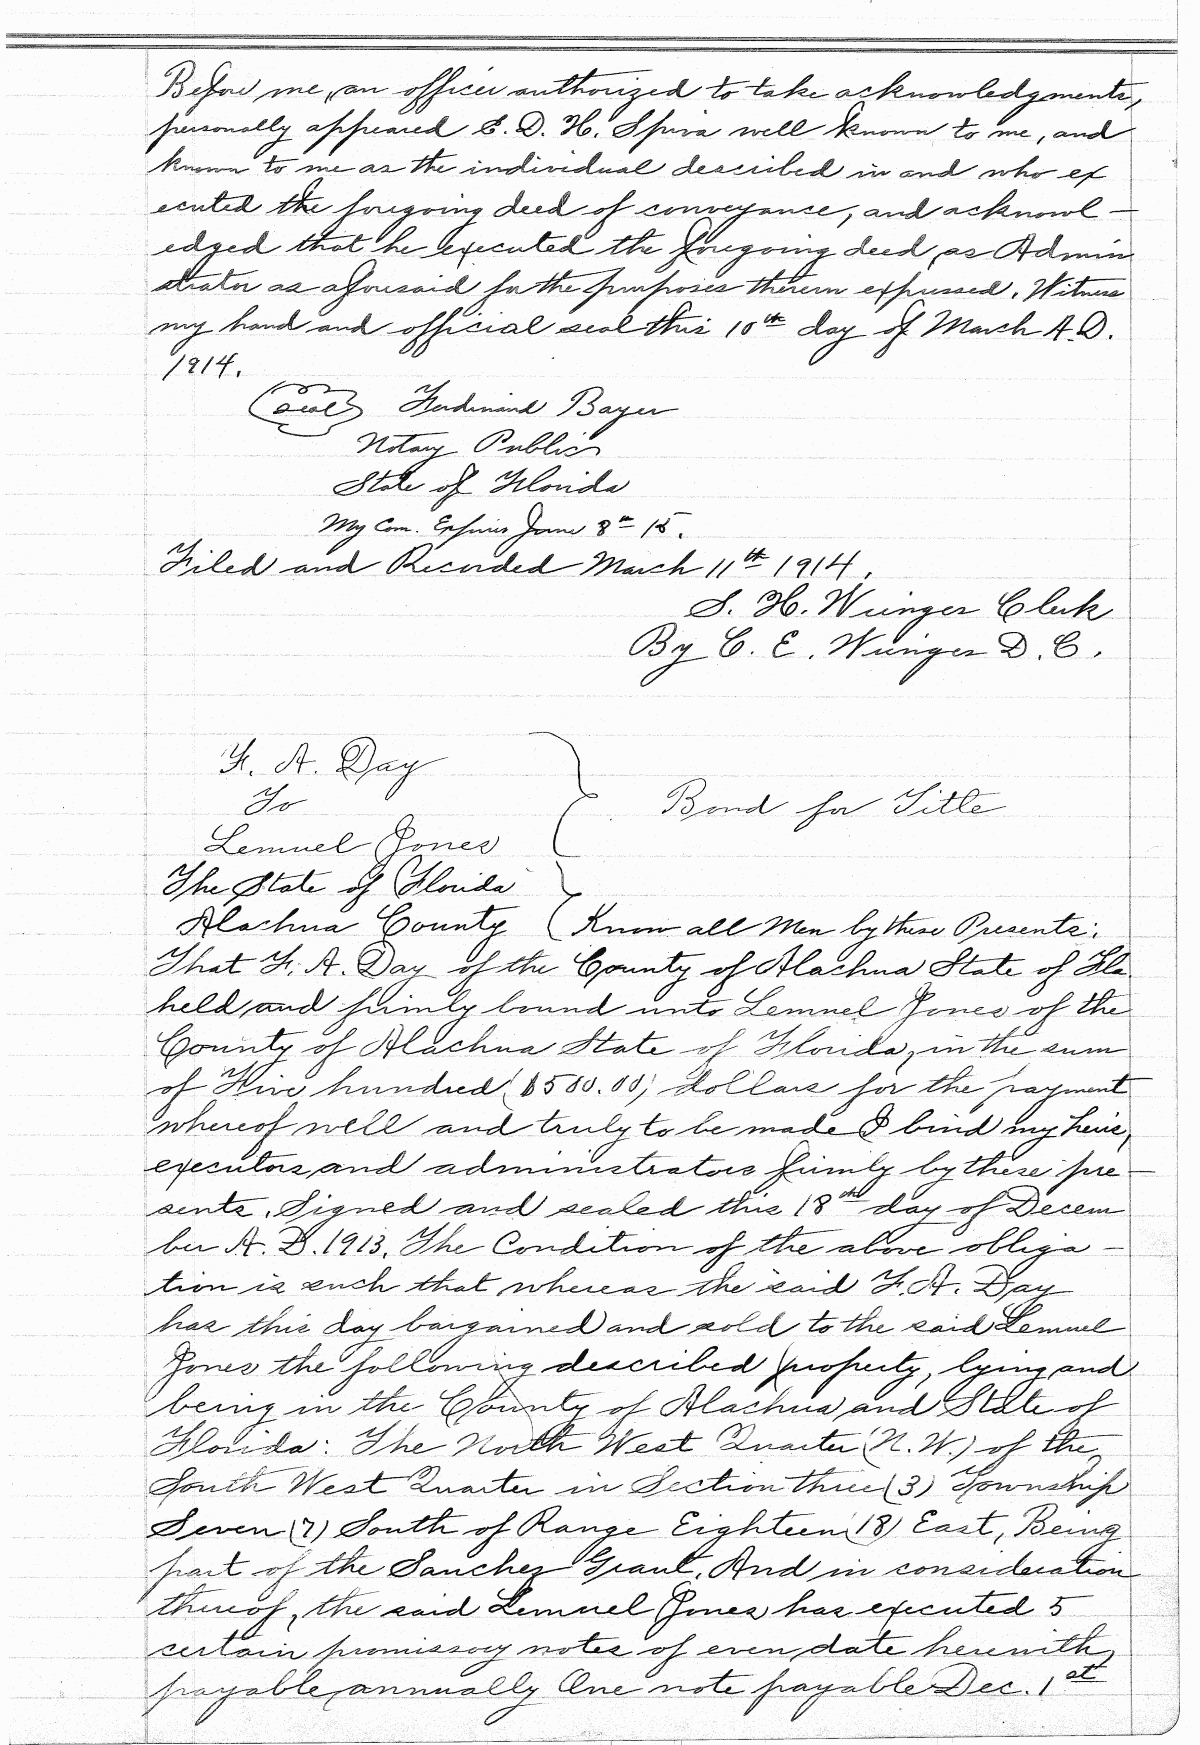 Before me, an officer authorized to take acknowledgments,
personally appeared E. D. H. Spiva well known to me, and
known to me as the individual described in and who ex
ecuted the foregoing deed of conveyance, and acknowl-
edged that he executed the foregoing deed, as Admin
strator as aforesaid for the purposes therein expressed. Witness
my hand and official seal this 10th day of March A.D.
1914.
(Seal) Ferdinand Bayer
Notary Public
State of Florida
My Com. Expires June 8th 15.
Filed and Recorded March 11th 1914.
S. H. Wienges Clerk
By C. E. Wienges D. C.
F. A. Day
To
Bond for Title
Lemuel Jones
The State of Florida
Alachua County Know all Men by these Presents:
That F. A. Day of the County of Alachua State of Fla
held and firmly bound unto Lemuel Jones of the
County of Alachua State of Florida, in the sum
of Five hundred ($500.00) dollars for the payment
whereof well and truly to be made I bind my heirs,
executors, and administrators firmly by these pre-
sents. Signed and sealed this 18th day of Decem
ber A. D. 1913. The Condition of the above obliga-
tion is such that whereas the said F. A. Day
has this day bargained and sold to the said Lemuel
Jones the following described property, lying and
being in the County of Alachua and State of
Florida: The North West Quarter (N. W.) of the
South West Quarter in Section three (3) Township
Seven (7) South of Range Eighteen (18) East, Being
part of the Sanchez Grant. And in consideration
thereof, the said Lemuel Jones has executed 5
certain promissory notes of even date herewith,
payable annually One note payable Dec. 1st